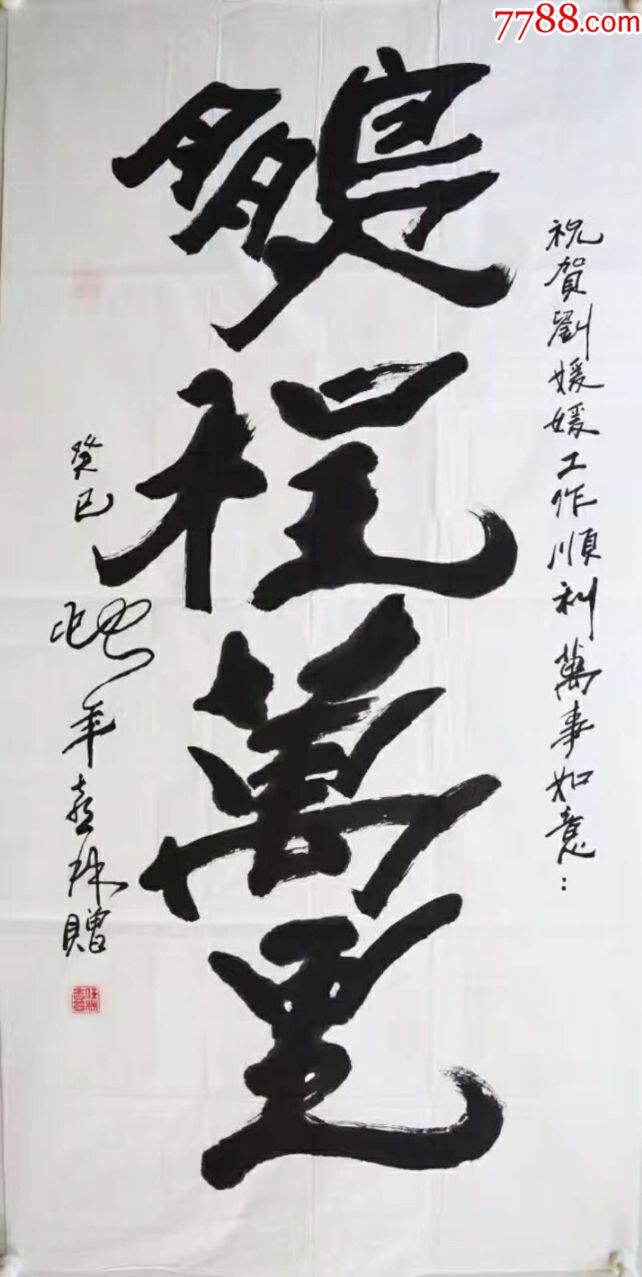 7788.com
祝賀劉媛媛工作順利萬事如意：
鵬程萬里
癸巳
年喜林贈